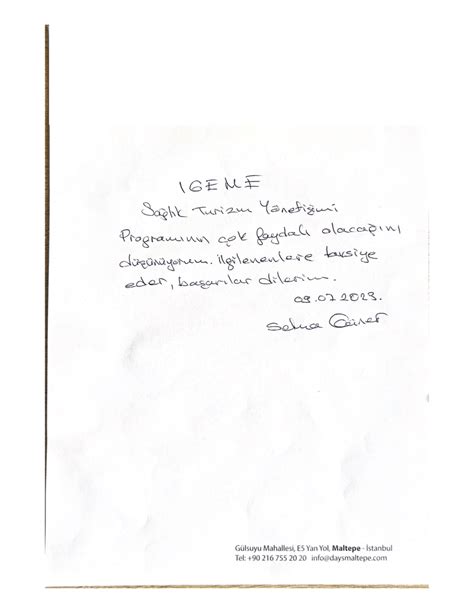 IGEME
Sağlık Turizm Yönetiğimi
Programının çok faydalı olacağını
düşünüyorum. ilgilenenlere tavsiye
eder, başarılar dilerim.
09.07.2023.
Selma Güner
Gülsuyu Mahallesi, E5 Yan Yol, Maltepe - İstanbul
Tel: +90 216 755 20 20 info@daysmaltepe.com